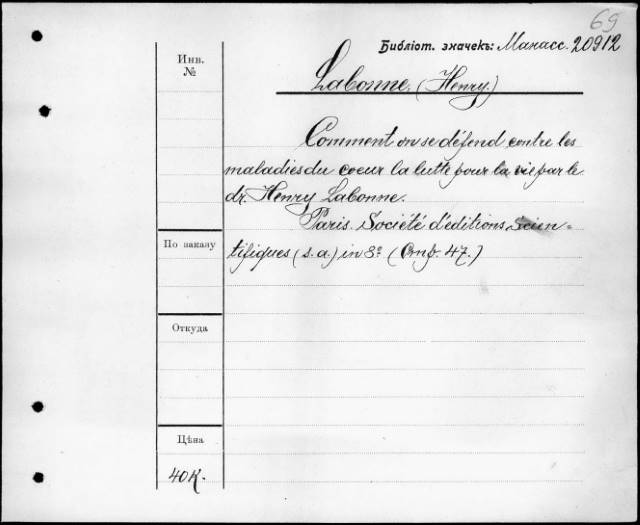 69
Библіот. значекъ: Манасс. 20912
Инв.
№
Labonne, (Henry.)
Comment on se défend contre les
maladies du coeur la lutte pour la vie par le
dr. Henry Labonne.
Paris. Société d'éditions scien-
tifiques (s. a.) in 8º ( 47.)
По заказу
Откуда
Цѣна
40 К.